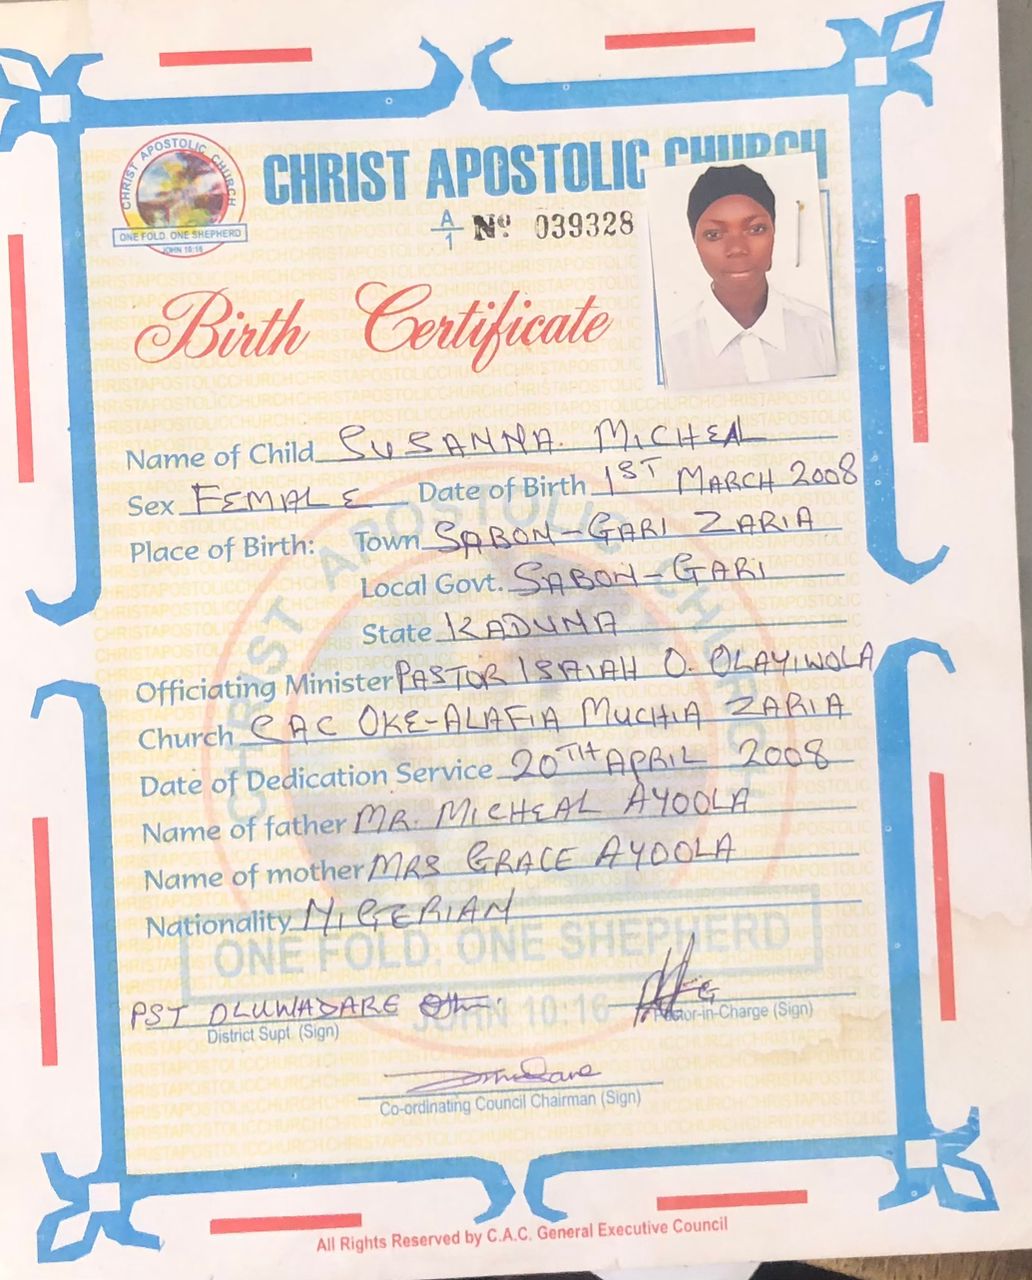 CHRIST APOSTOLIC CHURCH
CHRIST APOSTOLIC CHURCH
ONE FOLD. ONE SHEPHERD
JOHN 10:16
A/1 Nº 039328
Birth Certificate
Name of Child SUSANNA MICHEAL
Sex FEMALE Date of Birth 1ST MARCH 2008
Place of Birth: Town SABON-GARI ZARIA
Local Govt. SABON-GARI
State KADUNA
Officiating Minister PASTOR ISAIAH O. OLAYIWOLA
Church CAC OKE-ALAFIA MUCHIA ZARIA
Date of Dedication Service 20TH APRIL 2008
Name of father MR. MICHEAL AYOOLA
Name of mother MRS GRACE AYOOLA
Nationality NIGERIAN
ONE FOLD. ONE SHEPHERD
JOHN 10:16
PST OLUWADARE
District Supt (Sign)
Pastor-in-Charge (Sign)
Co-ordinating Council Chairman (Sign)
All Rights Reserved by C.A.C. General Executive Council